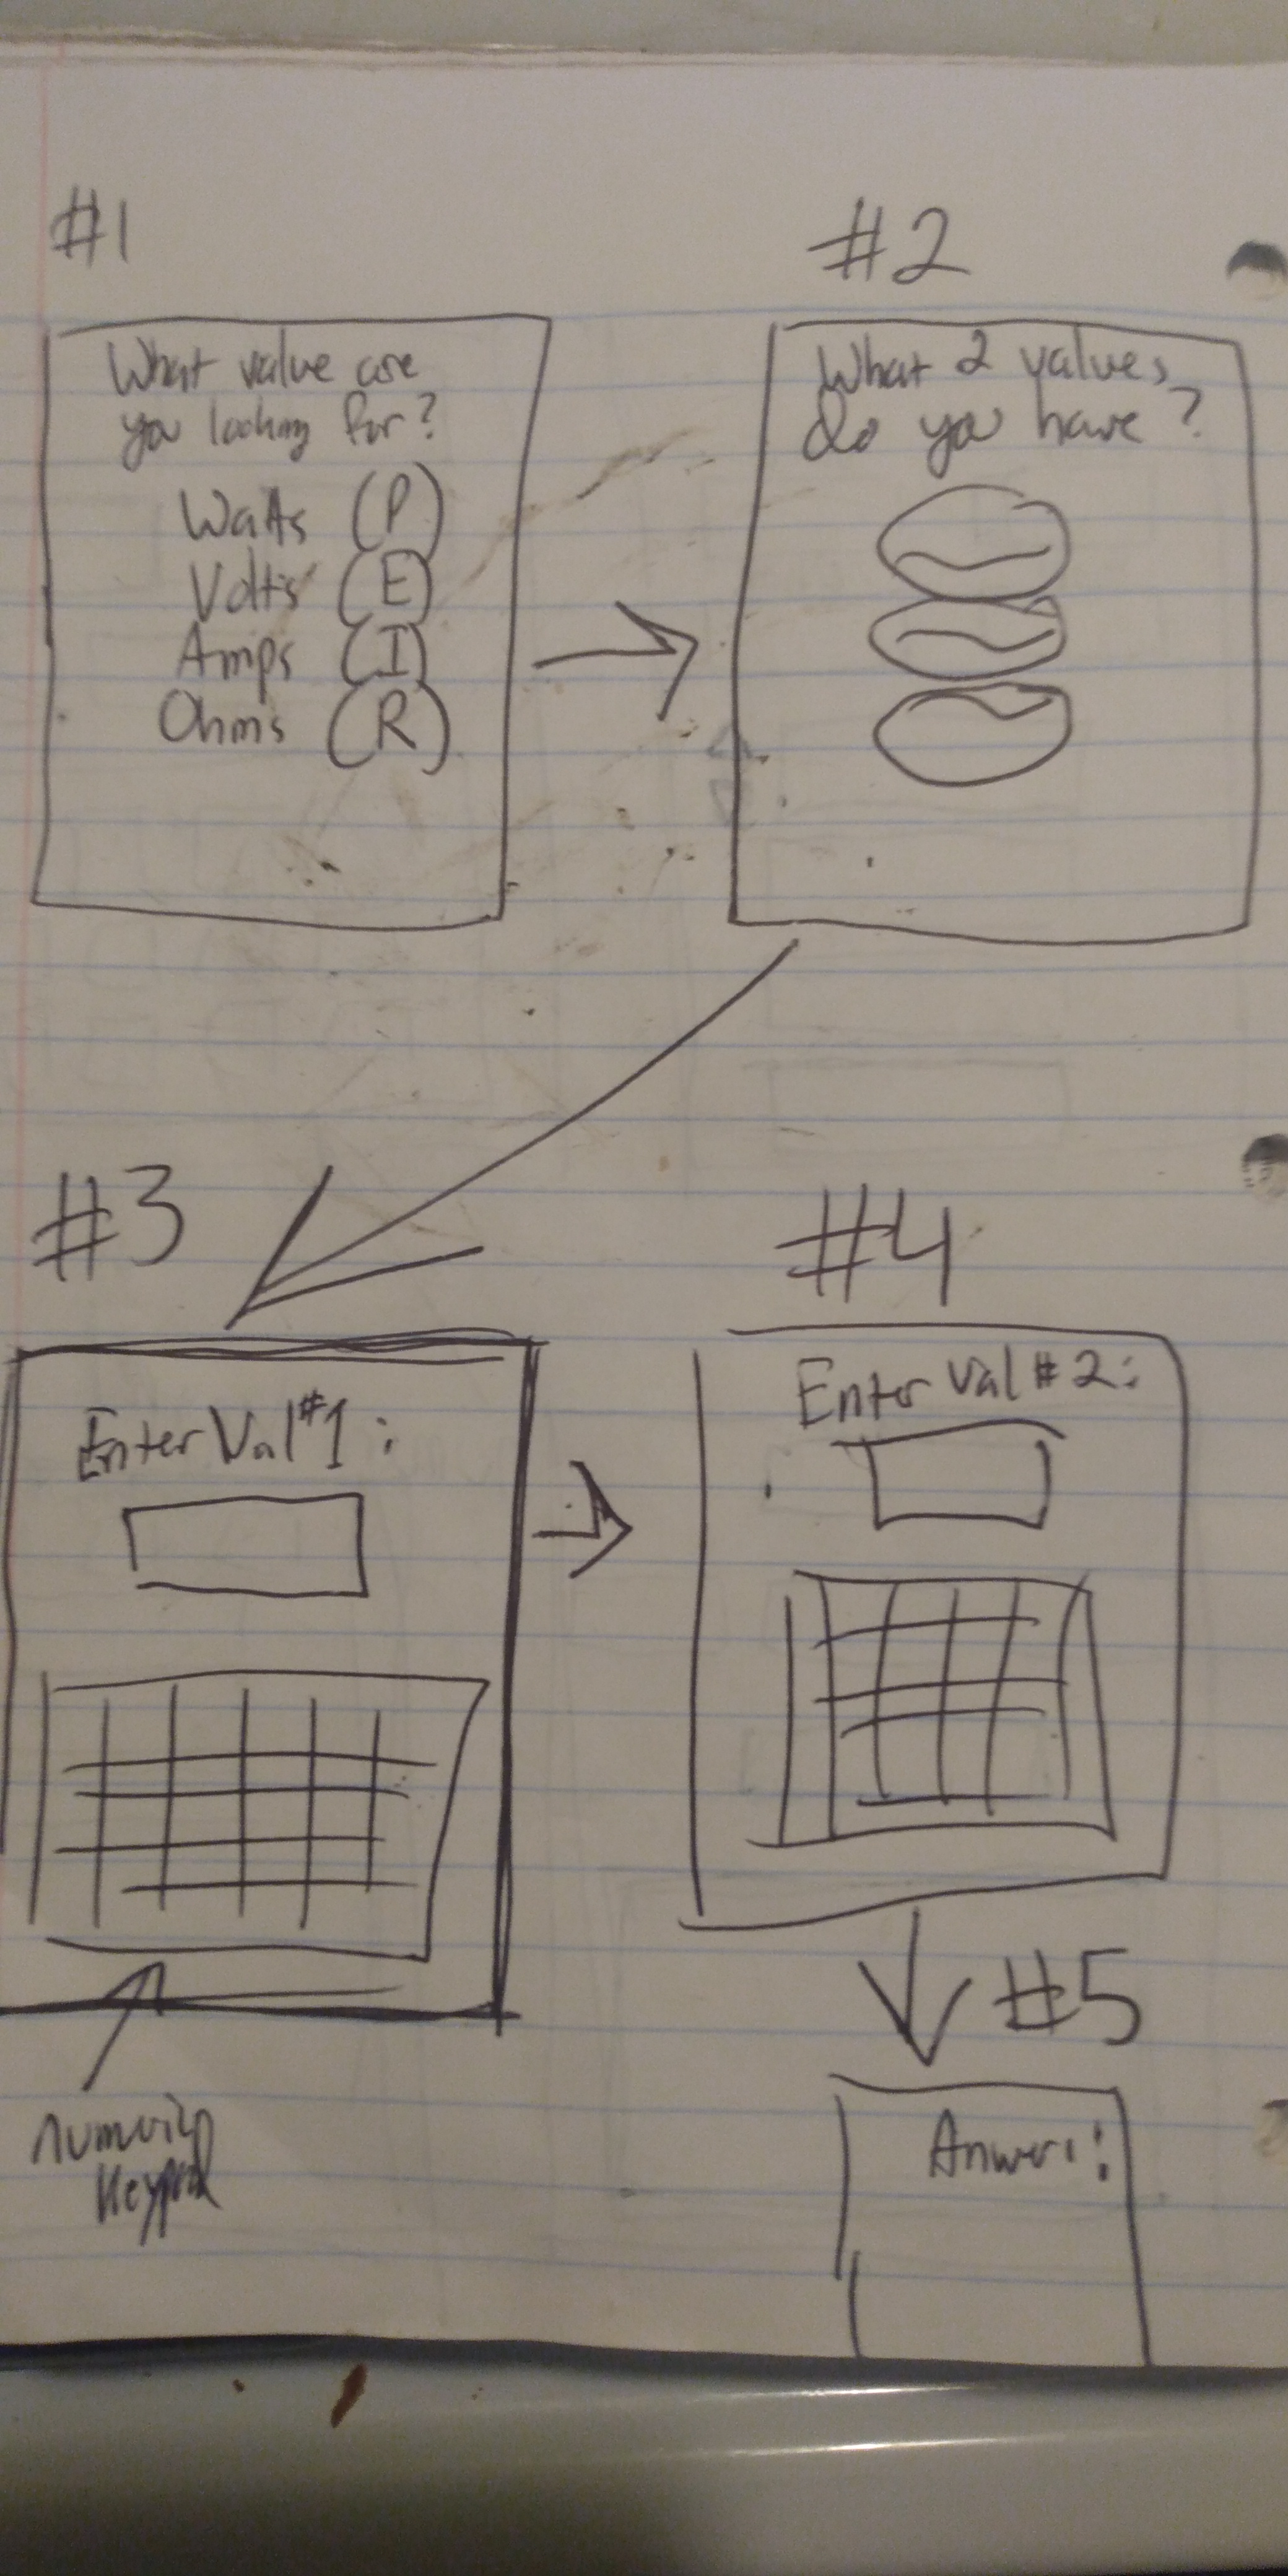 #1
What value are
you looking for?
Watts (P)
Volts (E)
Amps (I)
Ohms (R)
#2
What 2 values
do you have?
#3
Enter Val #1:
numeric
keypad
#4
Enter Val #2:
#5
Anwer: